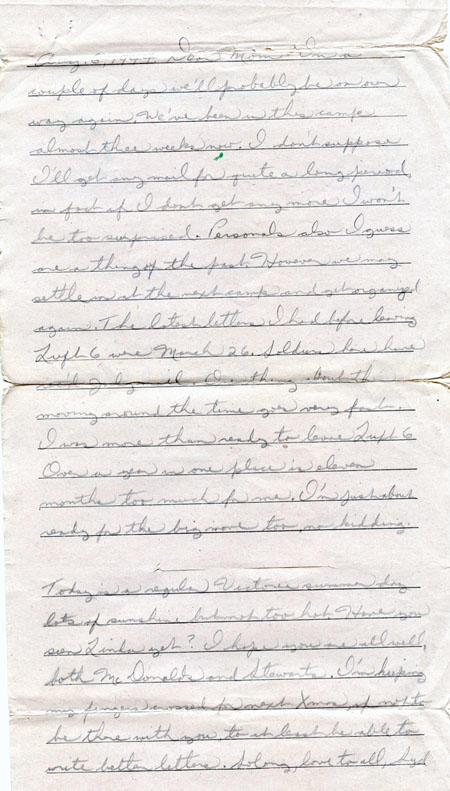 Aug. 6, 1944. Dear Mom: I'm a
couple of days we'll probably be on our
way again. We've been in this camp
almost three weeks now. I don't suppose
I'll get any mail for quite a long period,
in fact if I don't get any more I won't
be too surprised. Personals also I guess
are a thing of the past. However we may
settle in at the next camp and get organized
again. The latest letters I had before leaving
Luft 6 were March 26. Soldiers here have
July mail. One thing about th
moving around the time goes very fast.
I was more than ready to leave Luft 6
Over a year in one place is eleven
months too much for me. I'm just about
ready for the big move too, no kidding.
Today is a regular Victoria summer day
lots of sunshine but not too hot. Have you
seen Linda yet? I hope you are all well,
both McDonalds and Stewarts. I'm keeping
my fingers crossed for next Xmas, if not to
be there with you, to at least be able to
write better letters. So long, love to all, Syd